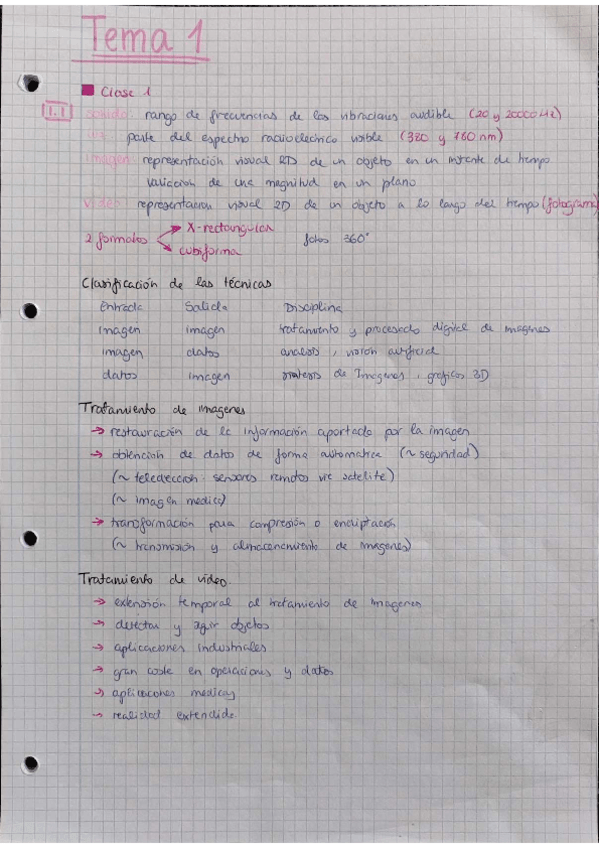 Tema 1
Clase 1
1.1 sonido: rango de frecuencias de las vibraciones audible (20 y 20000 Hz)
luz: parte del espectro radioelectrico visible (380 y 780 nm)
imagen: representación visual 2D de un objeto en un instante de tiempo
variación de una magnitud en un plano
video: representación visual 2D de un objeto a lo largo del tiempo (fotograma)
2 formatos → X-rectangular fotos 360°
→ cubiforma
Clasificación de las técnicas
Entrada Salida Disciplina
imagen imagen tratamiento y procesado digital de imagenes
imagen datos analisis, visión artificial
datos imagen sintesis de Imagenes, graficos 3D
Tratamiento de imagenes
→ restauración de la información aportada por la imagen
→ obtencion de datos de forma automatica (~ seguridad)
(~ teledetección: sensores remotos via satelite)
(~ imagen medica)
→ transformación para compresión o encriptación
(~ transmisión y almacenamiento de imagenes)
Tratamiento de video.
→ extensión temporal al tratamiento de imagenes
→ detectar y seguir objetos
→ aplicaciones industriales
→ gran coste en operaciones y datos
→ aplicaciones medicas
→ realidad extendida